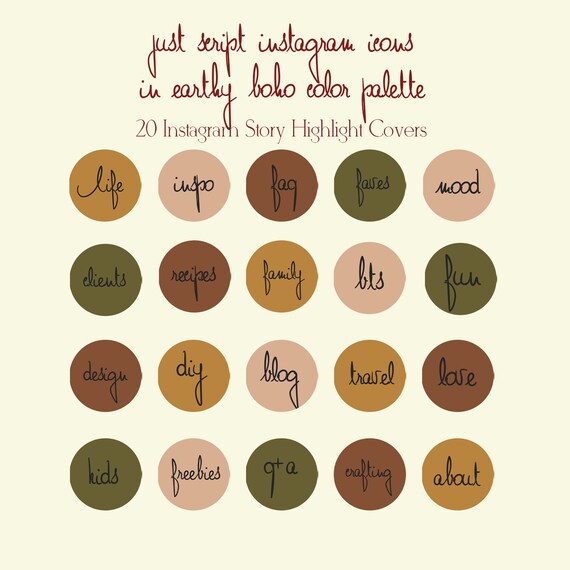 just script instagram icons
in earthy boho color palette
20 Instagram Story Highlight Covers
life inspo faq faves mood
clients recipes family bts fun
design diy blog travel love
kids freebies q+a crafting about